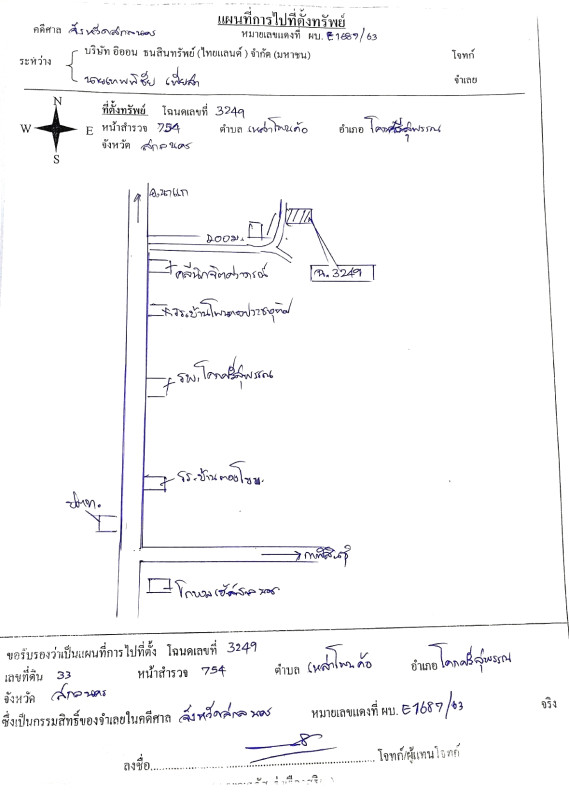 แผนที่การไปที่ตั้งทรัพย์
คดีศาล จังหวัดสกลนคร หมายเลขแดงที่ ผบ. E1687/63
ระหว่าง บริษัท อิออน ธนสินทรัพย์ (ไทยแลนด์) จำกัด (มหาชน) โจทก์
นายเทพพิชัย จำเลย
N
W E
S
ที่ตั้งทรัพย์ โฉนดเลขที่ 3249
หน้าสำรวจ 754 ตำบล เหล่าโพนค้อ อำเภอ โคกศรีสุพรรณ
จังหวัด สกลนคร
อ.นาแก
200ม.
ฉ. 3249
คลีนิก
รร.บ้านโพนค้อ
รพ.โคกศรีสุพรรณ
รร.บ้านตองโขบ
ปตท.
กาฬสินธุ์
ขอรับรองว่าเป็นแผนที่การไปที่ตั้ง โฉนดเลขที่ 3249
เลขที่ดิน 33 หน้าสำรวจ 754 ตำบล เหล่าโพนค้อ อำเภอ โคกศรีสุพรรณ
จังหวัด สกลนคร
ซึ่งเป็นกรรมสิทธิ์ของจำเลยในคดีศาล จังหวัดสกลนคร หมายเลขแดงที่ ผบ. E1687/63 จริง
ลงชื่อ........................................ โจทก์/ผู้แทนโจทก์